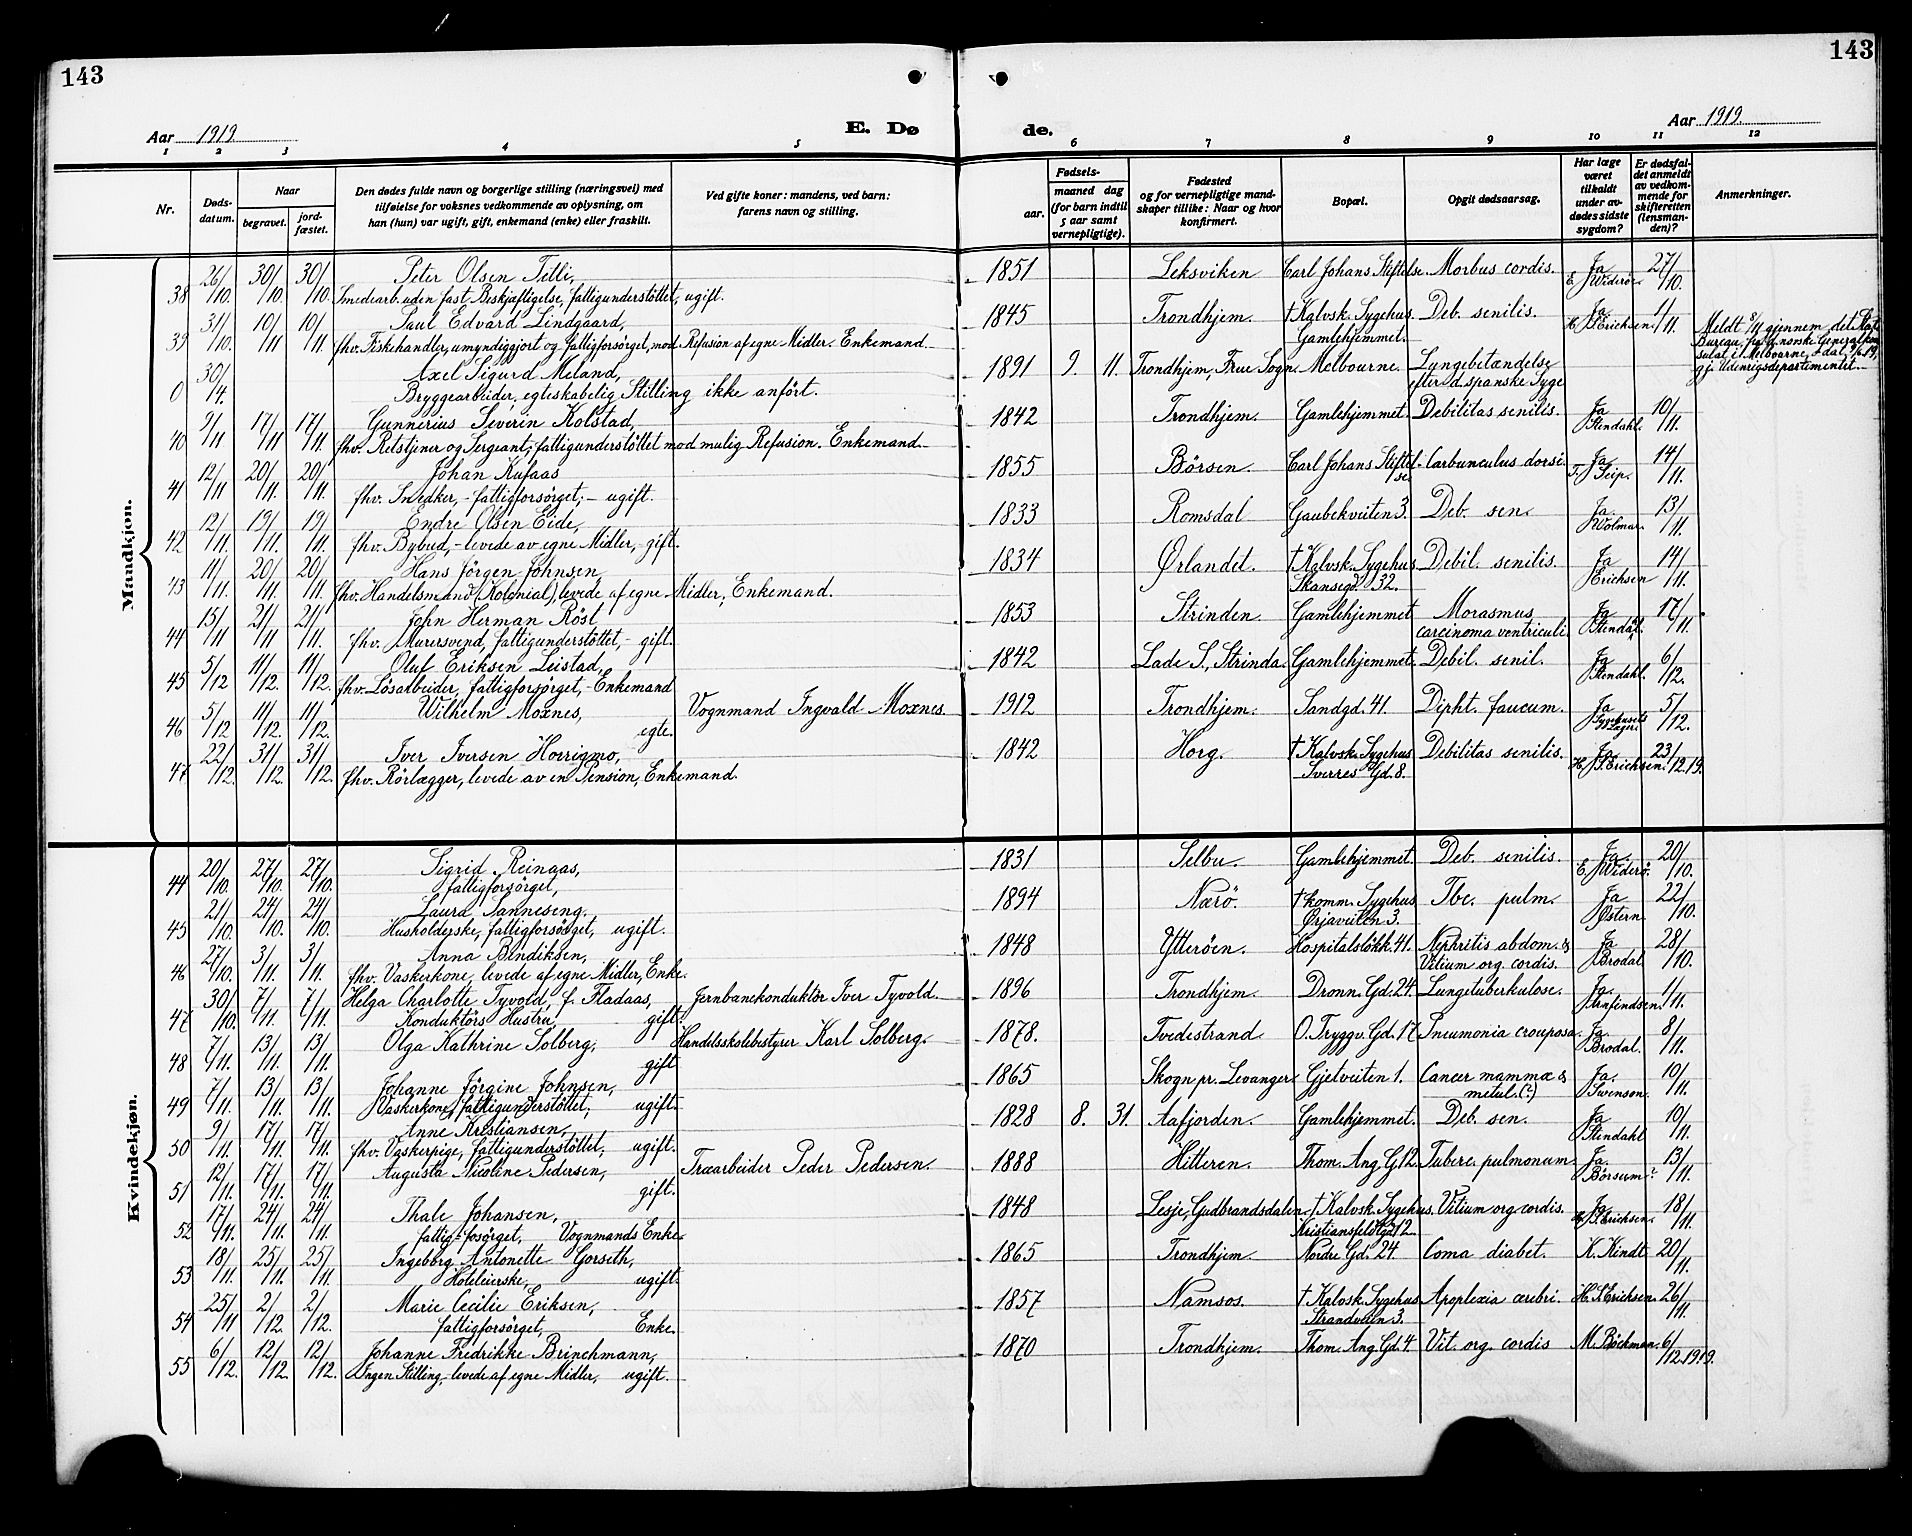 143
143
Aar 1919
E. Dø
de.
Aar 1919.
1 2 3 4 5 6 7 8 9 10 11 12
Nr.
Døds-
datum.
Naar
begravet.
jord-
fæstet.
Den dødes fulde navn og borgerlige stilling (næringsvei) med
tilføielse for voksnes vedkommende av oplysning, om
han (hun) var ugift, gift, enkemand (enke) eller fraskilt.
Ved gifte koner: mandens, ved barn:
farens navn og stilling.
Fødsels-
aar.
maaned dag
(for barn indtil
5 aar samt
vernepligtige).
Fødested
og for vernepligtige mand-
skaper tillike: Naar og hvor
konfirmert.
Bopæl.
Opgit dødsaarsag.
Har læge
været
tilkaldt
under av-
dødes sidste
sygdom?
Er dødsfal-
det anmeldt
av vedkom-
mende for
skifteretten
(lensman-
den)?
Anmerkninger.
Mandkjøn.
38 26/10. 30/10. 30/10. Peter Olsen Tetli, 1851 Leksviken Carl Johans Stiftelse. Morbus cordis. Ja E. Widerøe 27/10.
Smedearb. uden fast Beskjæftigelse, fattigunderstöttet, ugift.
39 31/10. 10/11 10/11. Paul Edvard Lindgaard, 1845 Trondhjem. † Kalvsk. Sygehus. Deb. senilis. Ja H. J. Erichsen. 1/11
fhv. Fiskehandler, umyndiggjort og fattigforsørget, mod Refusion af egne Midler. Enkemand. Gamlehjemmet.
0 30/14. Axel Sigurd Meland, 1891 9. 11. Trondhjem, Frue Sogn. Melbourne. Lungebetændelse
Bryggearbeider, egteskabelig Stilling ikke anført. efter d. spanske Syge
Meldt 8/11 gjennem det
Bureau, fra d. norske Generalkon
sulat i Melbourne,
gj. Udenrigsdepartementet.
40 9/11 17/11 17/11. Gunnerius Severin Kolstad, 1842 Trondhjem. Gamlehjemmet. Debilitas senilis. Ja Stendahl. 10/11.
fhv. Retstjener og Sergeant, fattigunderstöttet mod mulig Refusion. Enkemand.
41 12/11 20/11. 20/11. Johan Kufaas 1855 Börsen. Carl Johans Stiftel- Carbunculus dorsi. Ja 14/11.
fhv. Snedker, - fattigforsörget; - ugift. se.
42 12/11. 19/11. 19/11. Endre Olsen Eide, 1833 Romsdal Gaubekveiten 3. Deb. sen. Ja. Wolmar. 13/11.
fhv. Bybud, - levede av egne Midler, - gift.
43 11/11. 20/11. 20/11. Hans Jörgen Johnsen 1834 Ørlandet. † Kalvsk. Sygehus. Debil. senilis. Ja Erichsen 14/11.
fhv. Handelsmand (Kolonial), levede af egne Midler; Enkemand. Skansegd. 32.
44 15/11 21/11 21/11. John Herman Röst 1853 Strinden. Gamlehjemmet Morasmus Ja Stendal. 17/11.
fhv. Murersvend, fattigunderstöttet, - gift. carcinoma ventriculi.
45 5/12 11/12. 11/12. Oluf Eriksen Leistad, 1842 Lade S., Strinda. Gamlehjemmet. Debil. senil. Ja Stendahl. 6/12.
fhv. Lösarbeider, fattigforsörget, - Enkemand
46 5/12 11/12. 11/12. Wilhelm Moxnes, Vognmand Ingvald Moxnes. 1912 Trondhjem. Sandgd. 41. Dipht. faucum. Ja Sygehusets Læger. 5/12.
egte.
47 22/12. 31/12. 31/12. Iver Iversen Horrigmo, 1842 Horg. † Kalvsk. Sygehus Debilitas senilis. Ja H. J. Erichsen. 23/12.19.
fhv. Rörlægger, levede av en Pension, Enkemand. Sverres Gd. 8.
Kvindekjøn.
44 20/10. 27/10. 27/10. Sigrid Reinaas, 1831 Selbu. Gamlehjemmet. Deb. senilis. Ja. E. Widerö. 20/10.
fattigforsörget,
45 21/10. 24/10. 24/10. Laura Sanneseng. 1894 Nærö. † komm. Sygehus Tbc. pulm. Ja Østern 22/10.
Husholderske, fattigforsörget, ugift. Ørjaveiten 3.
46 27/10. 3/11. 3/11. Anna Bendiksen, 1848 Ytteröen. Hospitalslökk. 41. Nephritis abdom. & Ja Brodal 28/10.
fhv. Vaskerkone, levede af egne Midler, Enke. Vitium org. cordis.
47 30/10. 7/11. 7/11. Helga Charlotte Tyvold, f. Fladaas, Jernbanekonduktör Iver Tyvold. 1896 Trondhjem. Dronn. Gd. 24. Lungetuberkulose. Ja. Arnfindsen. 1/11.
Konduktörs Hustru, gift.
48 7/11. 13/11. 13/11. Olga Kathrine Solberg, Handelsskolebestyrer Karl Solberg. 1878. Tvedestrand O. Tryggv. Gd. 17 Pneumonia crouposa. Ja. Brodal. 8/11.
gift
49 7/11. 13/11. 13/11. Johanne Jörgine Johnsen, 1865 Skogn pr. Levanger. Gjetveiten 1. Cancer mammæ & Ja. Svenson. 10/11.
Vaskerkone, fattigunderstöttet, ugift. metul. (?)
50 9/11. 17/11. 17/11. Anne Kristiansen, 1828 8. 31. Aafjorden. Gamlehjemmet. Deb. sen. Ja Stendahl 10/11.
fhv. Vaskerpige, fattigunderstöttet, ugift.
51 12/11. 17/11. 17/11. Augusta Nicoline Pedersen, Træarbeider Peder Pedersen. 1888 Hitteren. Thom. Ang. G. 12. Tuberc. pulmonum. Ja. Börsum? 13/11.
gift.
52 17/11. 24/11. 24/11. Thale Johansen, 1848 Lesje, Gudbrandsdalen. † Kalvsk. Sygehus. Vitium org. cordis. Ja H. J. Erichsen. 18/11.
fattig-fosörget, Vognmands Enke. Kristiansfeldtgd. 12.
53 18/11. 25/11. 25/11. Ingeborg Antonette Gorseth, 1865 Trondhjem. Nordre Gd. 24. Coma diabet. K. Kindt 20/11.
Hoteleierske, ugift.
54 25/11 2/12. 2/12. Marie Cecilie Eriksen, 1857 Namsos. † Kalvsk. Sygehus Apoplexia cerebri. H. J. Erichsen. 26/11.
fattigforsörget, Enke. Strandveien 3.
55 6/12. 12/12. 12/12. Johanne Fredrikke Brinchmann, 1870 Trondhjem. Thom. Ang. Gd. 4 Vit. org. cordis M. Böckman. 6/12.1919.
Ingen Stilling, - levede af egne Midler, ugift.